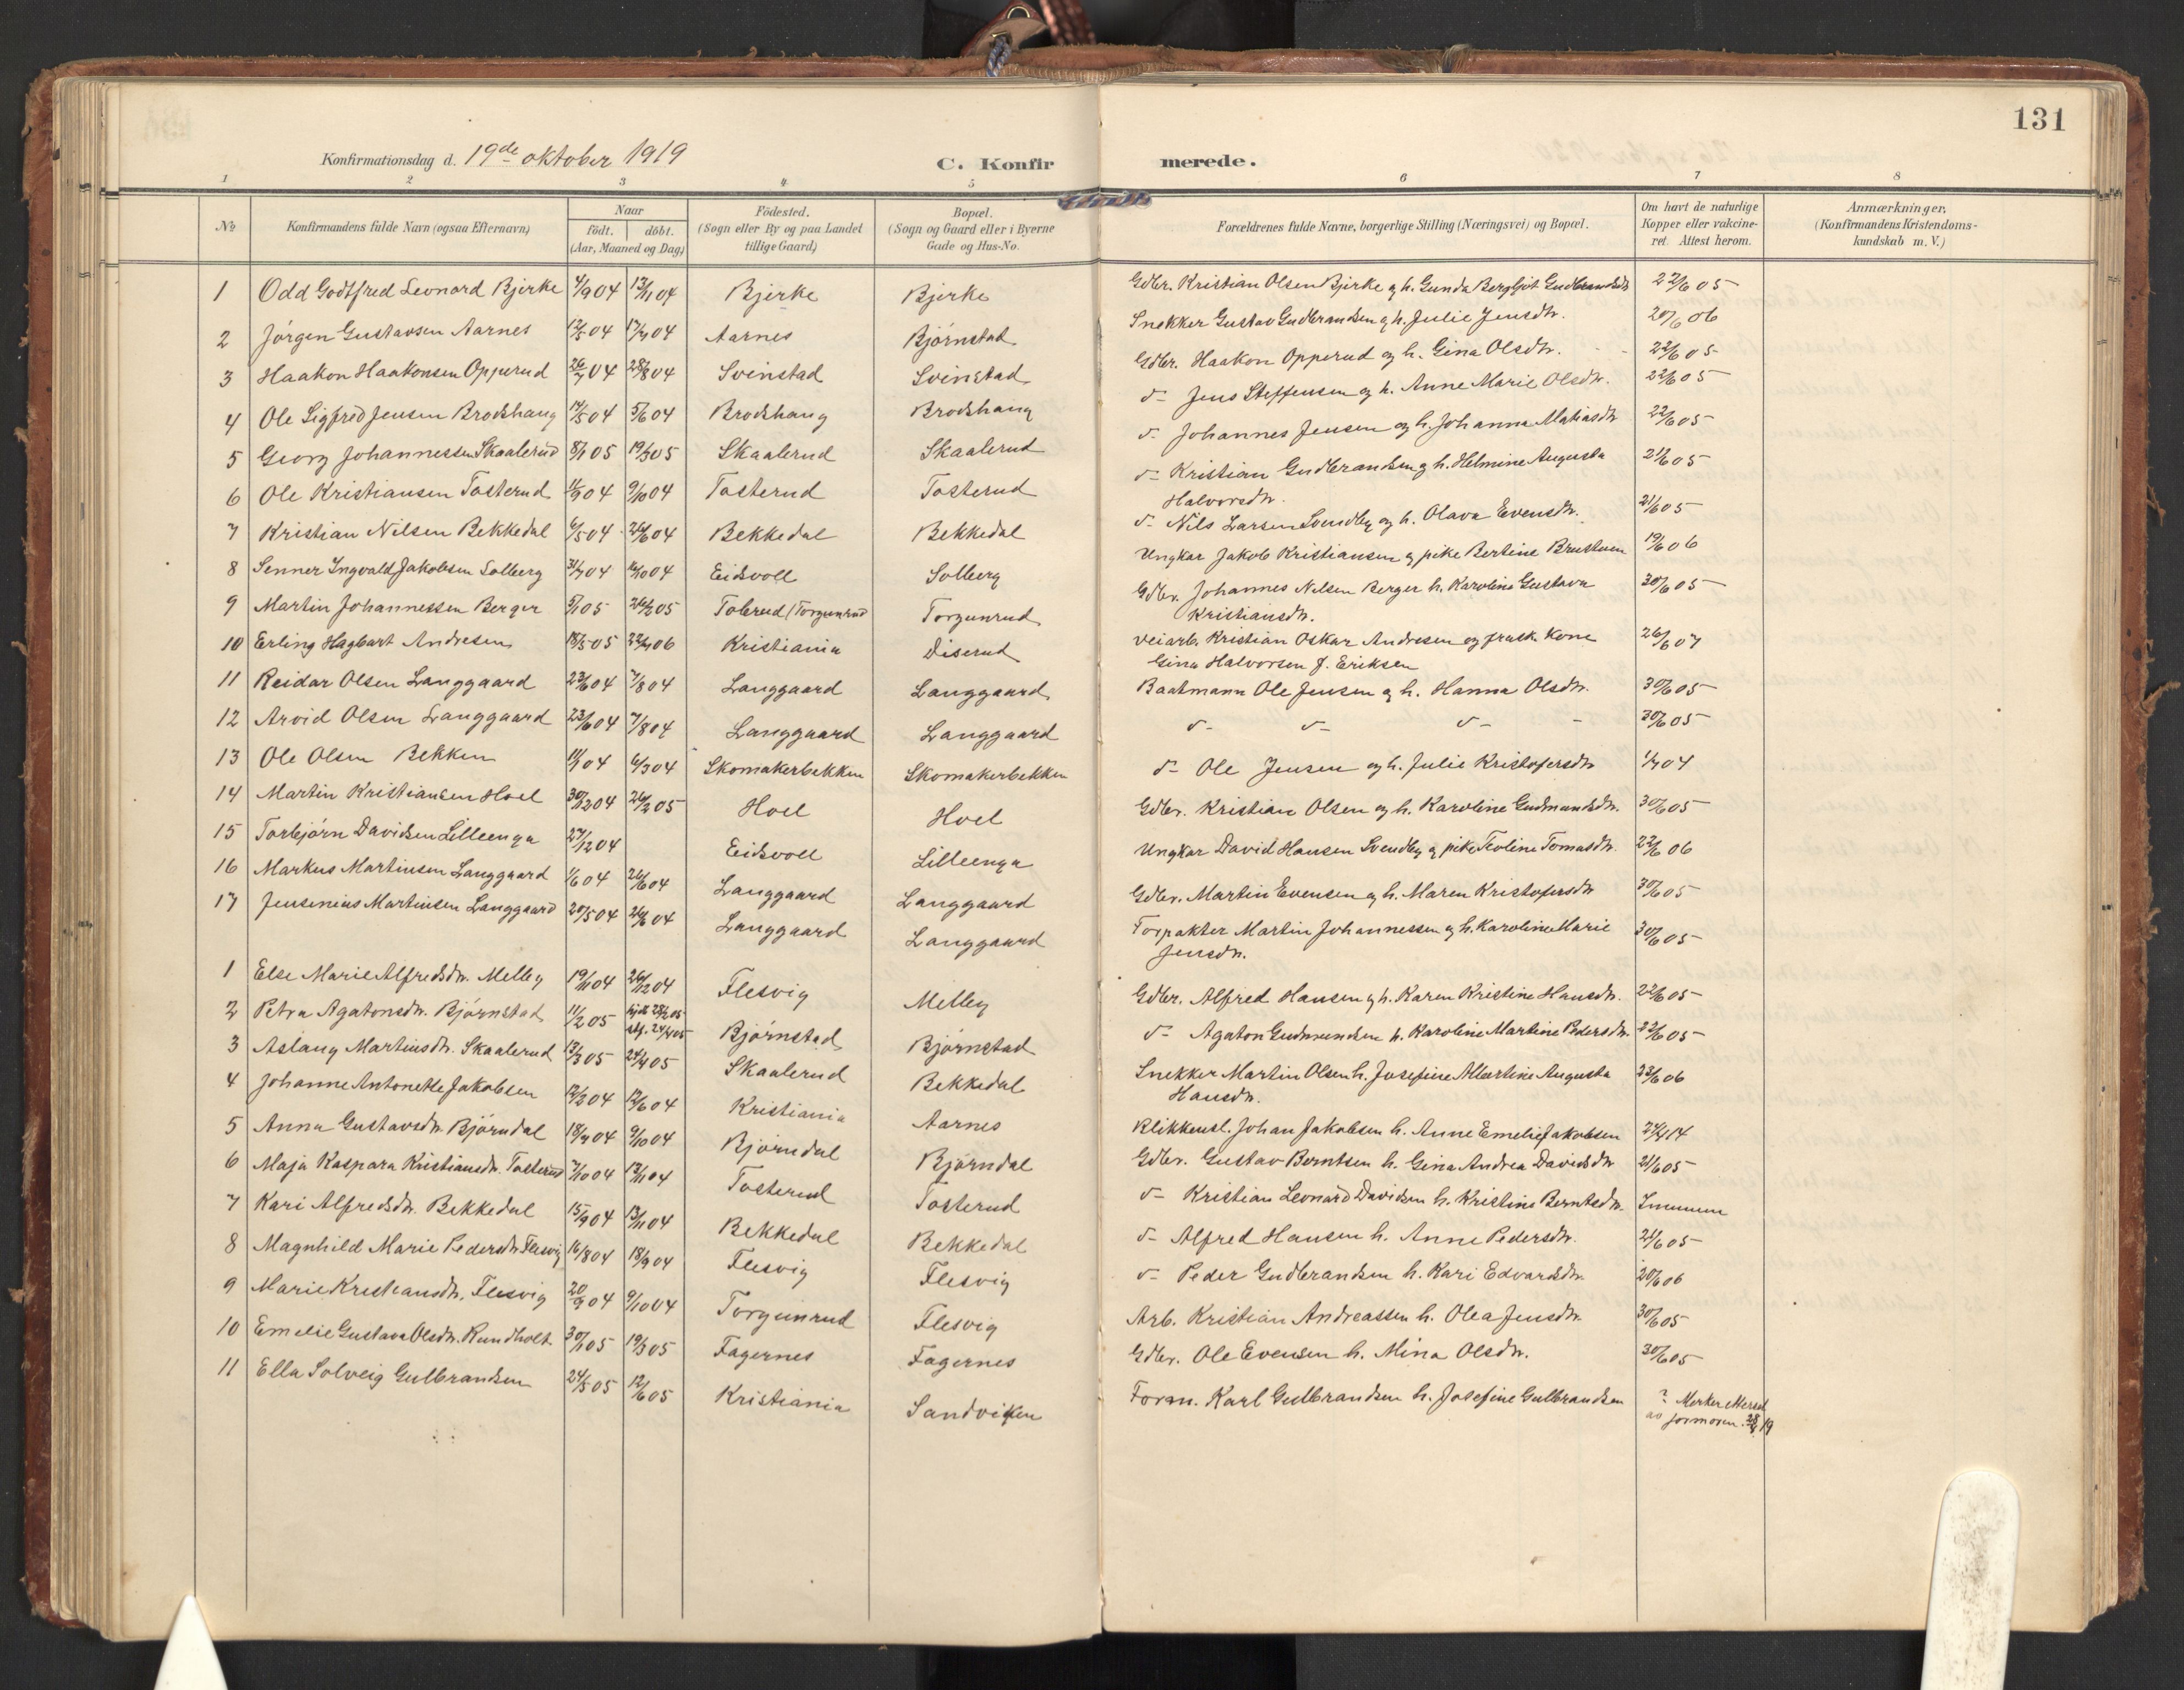 131
Konfirmationsdag d. 19de oktober 1919
C. Konfirmerede.
1 2 3 4 5 6 7 8
No
Konfirmandens fulde Navn (ogsaa Efternavn)
Naar
födt. döbt.
(Aar, Maaned og Dag)
Födested.
(Sogn eller By og paa Landet
tillige Gaard)
Bopæl.
(Sogn og Gaard eller i Byerne
Gade og Hus-No.
Forældrenes fulde Navne, borgerlige Stilling (Næringsvei) og Bopæl.
Om havt de naturlige
Kopper eller vakcine-
ret. Attest herom.
Anmærkninger,
(Konfirmandens Kristendoms-
kundskab m. V.)
1 Odd Godtfred Leonard Bjerke 4/9 04 13/11 04 Bjerke Bjerke Gdbr. Kristian Olsen Bjerke og h. Gunda Bergljot Gudbrandsdtr 22/6 05
2 Jörgen Gustavsen Aarnes 12/5 04 17/7 04 Aarnes Björnstad Snekker Gustav Gudbrandsen og h. Julie Jensdtr. 20/6 06
3 Haakon Haakonsen Opperud 26/7 04 28/8 04 Svinstad Svinstad Gdbr. Haakon Opperud og h. Gina Olsdtr. 22/6 05
4 Ole Sigfred Jensen Brodshaug 14/5 04 5/6 04 Brodshaug Brodshaug d- Jens Steffensen og h. Anne Marie Olsdtr. 22/6 05
5 Georg Johannessen Skaalerud 8/1 05 19/3 05 Skaalerud Skaalerud d- Johannes Jensen og h. Johanna Matiasdtr 22/6 05
6 Ole Kristiansen Tosterud 11/9 04 9/10 04 Tosterud Tosterud d- Kristian Gudbrandsen og h. Helmine Augusta 21/6 05
Halvorsdtr.
7 Kristian Nilsen Bekkedal 6/5 04 26/6 04 Bekkedal Bekkedal d- Nils Larsen Svendby og h. Olava Evensdtr. 21/6 05
8 Senner Ingvald Jakobsen Solberg 31/7 04 16/10 04 Eidsvoll Solberg Ungkar Jakob Kristiansen og pike Bertine Brustuen 19/6 06
9 Martin Johannessen Berger 5/1 05 26/2 05 Toberud (Torgunrud Torgunrud Gdbr. Johannes Nilsen Berger h. Karoline Gustava 30/6 05
Kristiansdtr.
10 Erling Hagbart Andresen 18/5 05 22/7 06 Kristiania Diserud Veiarb. Kristian Oskar Andresen og frask. Kone 26/6 07
Gina Halvorsen f. Eriksen
11 Reidar Olsen Langgaard 23/6 04 7/8 04 Langgaard Langgaard Baatmann Ole Jensen og h. Hanna Olsdtr. 30/6 05
12 Arvid Olsen Langgaard 23/6 04 7/8 04 Langgaard Langgaard d- d- d- - 30/6 05
13 Ole Olsen Bekken 11/1 04 6/3 04 Skomakerbekken Skomakerbekken d- Ole Jensen og h. Julie Kristofersdtr 1/7 04
14 Martin Kristiansen Hoel 30/12 04 26/2 05 Hoel Hoel Gdbr. Kristian Olsen og h. Karoline Gudmundsdtr. 30/6 05
15 Torbjörn Davidsen Lilleenga 27/12 04 Eidsvoll Lilleenga Ungkar David Hansen Svendby og pike Teoline Tomasdtr. 22/6 06
16 Markus Martinsen Langgaard 1/6 04 26/6 04 Langgaard Langgaard Gdbr. Martin Evensen og h. Maren Kristofersdtr 30/6 05
17 Jensenius Martinsen Langgaard 20/5 04 26/6 04 Langgaard Langgaard Forpakter Martin Johannessen og h. Karoline Marie 30/6 05
Jensdtr.
1 Else Marie Alfredsdtr. Melby 19/11 04 26/12 04 Flesvig Melby Gdbr. Alfred Hansen og h. Karen Kristine Hansdtr. 22/6 05
2 Petra Agatonsdtr. Björnstad 11/2 05 hjd. 28/2 05 Björnstad Björnstad d- Agaton Gudmundsen h. Karoline Martine Pedersdtr. 22/6 05
stf. 24/4 05
3 Aslaug Martinsdtr. Skaalerud 13/3 05 24/4 05 Skaalerud Bekkedal Snekker Martin Olsen h. Josefine Albertine Augusta 23/6 06
Hansdtr.
4 Johanne Antonette Jakobsen 12/2 04 12/6 04 Kristiania Aarnes Blikkensl. Johan Jakobsen h. Anne Emelie Jakobsen 24/4 14
5 Anna Gustavsdtr. Björndal 18/7 04 9/10 04 Björndal Björndal Gdbr. Gustav Berntsen h. Gina Andrea Davidsdtr 21/6 05
6 Maja Kaspara Kristiansdtr. Tosterud 7/10 04 13/11 04 Tosterud Tosterud d- Kristian Leonard Davidsen h. Kristine Berntsdtr. Immun
7 Kari Alfredsdtr. Bekkedal 15/9 04 13/11 04 Bekkedal Bekkedal d- Alfred Hansen h. Anne Pedersdtr. 21/6 05
8 Magnhild Marie Pedersdtr. Flesvig 16/8 04 18/9 04 Flesvig Flesvig d- Peder Gudbrandsen h. Kari Edvardsdtr. 20/6 06
9 Marie Kristiansdtr. Flesvig 20/9 04 9/10 04 Torgunrud Flesvig Arb. Kristian Andreassen h. Olea Jensdtr. 30/6 05
10 Emelie Gustava Olsdtr. Rundholt. 30/1 05 19/3 05 Fagernes Fagernes Gdbr. Ole Evensen h. Mina Olsdtr. 30/6 05
11 Ella Solveig Gulbrandsen 24/5 05 12/6 05 Kristiania Sandviken Form. Karl Gulbrandsen h. Josefine Gulbrandsen ? Merker
av jormoren. 19